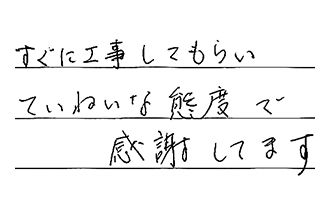 すぐに工事してもらい
ていねいな態度で
感謝してます